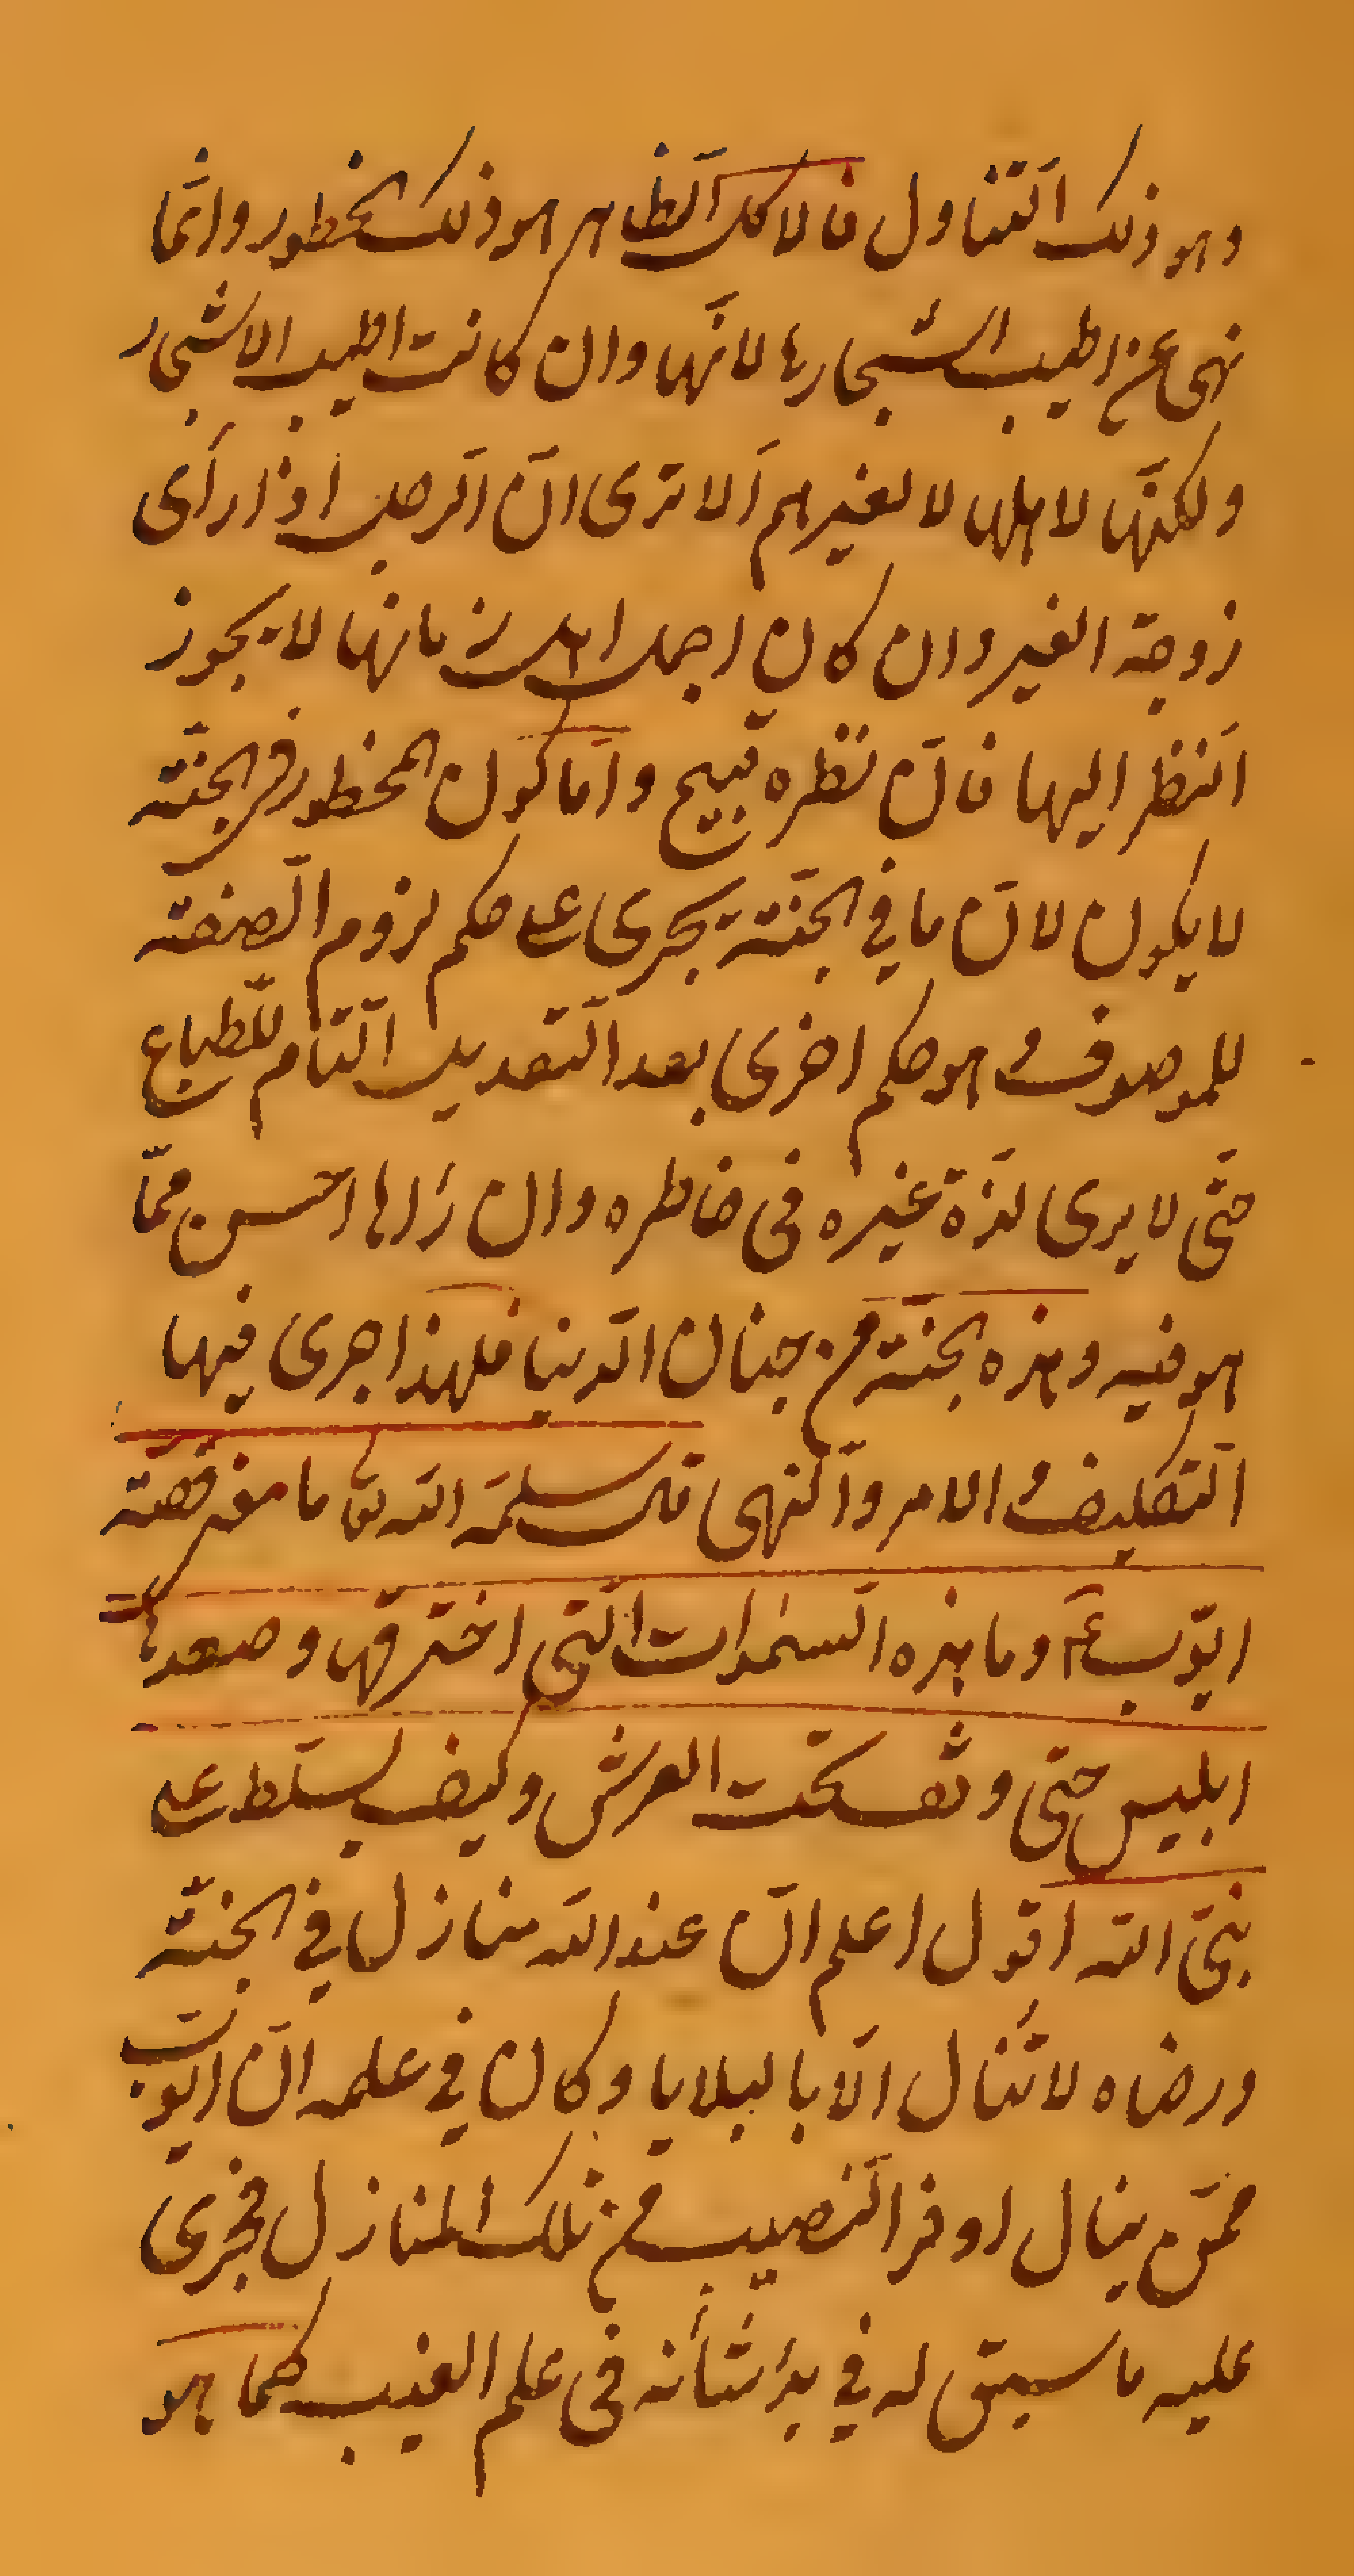 وهو ذلك التّناول فالاكل الظاهر هو ذلك الخطور وانّما
نهى عن اطيب اشجارها لانّها وان كانت اطيب الاشجار
ولكنّها لاهلها لا لغيرهم ألا ترى انّ الرّجل اذا رأى
زوجة الغير وان كان اجمل اهل زمانها لا يجوز
النّظر اليها فانّ نظره قبيح وامّا كون المخطور فى الجنّة
لا يكون لانّ ما في الجنّة يجرى على حكم لزوم الصّفة
للموصوف وهو حكم اخرى بعد التّعديل التّام للطّباع
حتّى لا يرى لذّة غيره فى خاطره وان رءاها احسن ممّا
هو فيه وهذه الجنّة من جنان الدّنيا فلهذا جرى فيها
التّكليف والامر والنّهى قال سلّمه اللّه تعا ما معنى قصّة
ايّوب ع وما هذه السّموات الّتى اخترقها وصعدها
ابليس حتى وثف تحت العرش وكيف يسلّط على
نبىّ اللّه اقول اعلم انّ عند اللّه منازل في الجنّة
ورضاه لا تُنال الّا بالبلايا وكان في علمه انّ ايّوب
ممّن ينال اوفر النّصيب من تلك المنازل فجرى
عليه ما سبق له في بدء شأنه فى علم الغيب كما هو